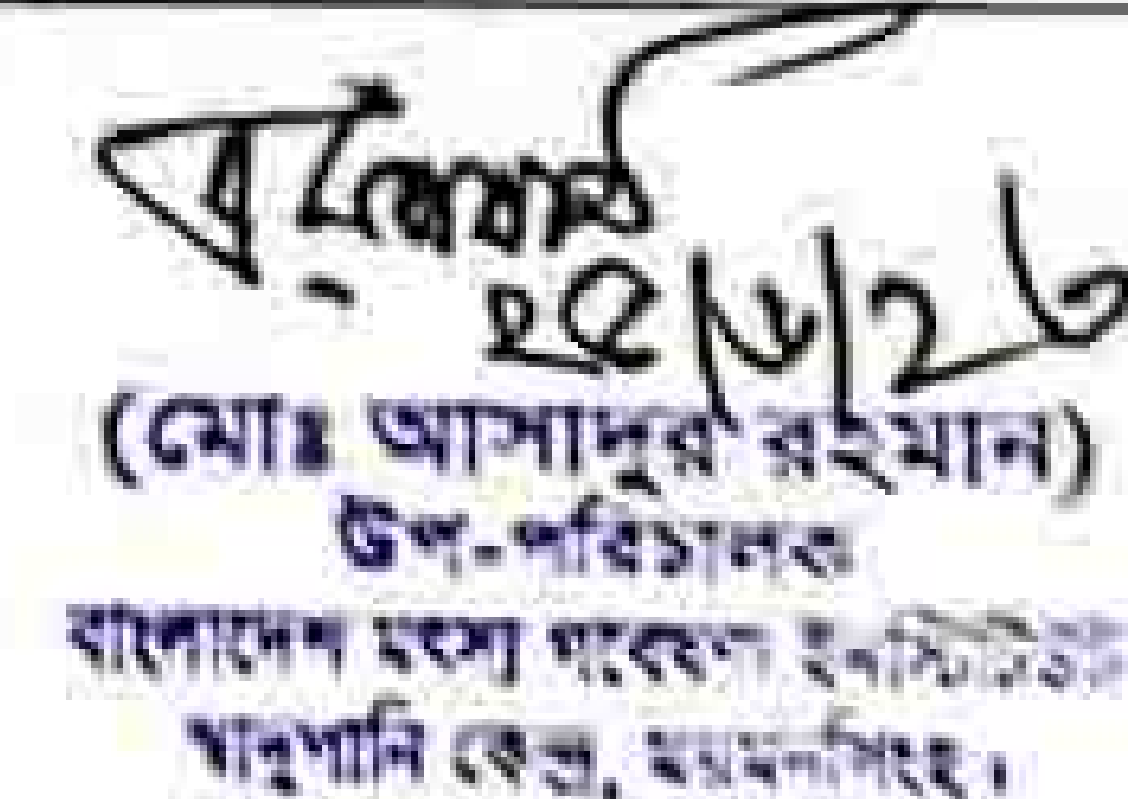 (মোঃ আসাদুর রহমান)
উপ-পরিচালক
বাংলাদেশ মৎস্য গবেষণা ইনস্টিটিউট
স্বাদুপানি কেন্দ্র, ময়মনসিংহ।